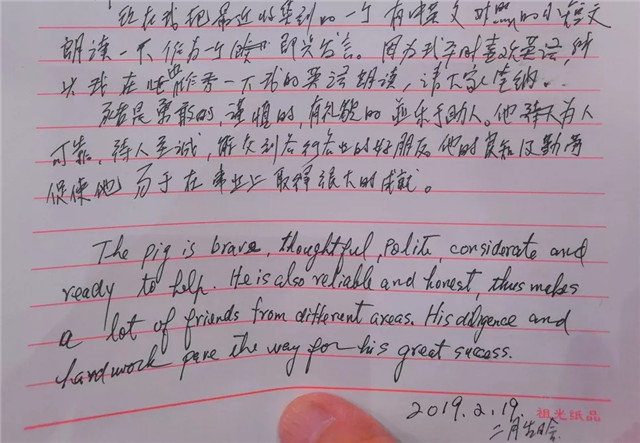 现在我把最近收集到的一个有中英文对照的小短文
朗读一下作为一个即兴发言。因为我平时喜欢英语，所
以我在这里作秀一下我的英语朗读，请大家佳纳。
猪是勇敢的，谨慎的，有礼貌的并乐于助人。他待人为人
可靠，待人至诚，所交到各行各业的好朋友。他的良知及勤劳
促使他易于在事业上取得很大的成就。
The pig is brave, thoughtful, polite, considerate and
ready to help. He is also reliable and honest, thus makes
a lot of friends from different areas. His diligence and
hardwork pave the way for his great success.
2019.2.19.
祖光纸品
二月